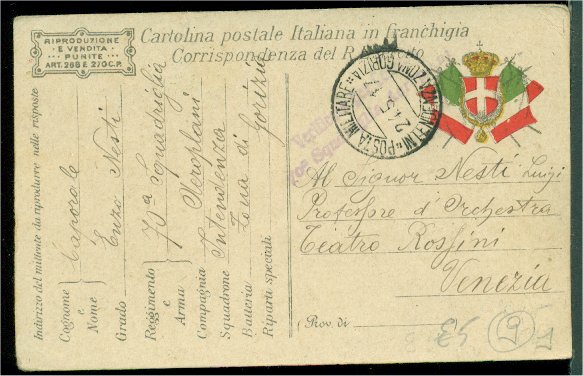 RIPRODUZIONE
E VENDITA
PUNITE
ART. 268 E 270 C.P.
Cartolina postale Italiana in franchigia
Corrispondenza del R.
POSTA MILITARE
INTENDENZA ZONA GORIZIA
24 5 17
Al Signor Nesti Luigi
Professore d'Orchestra
Teatro Rossini
Venezia
(Prov. di
Indirizzo del mittente da riprodurre nelle risposte
Cognome e Nome
Caporale
Enzo Nesti
Grado
Reggimento e Arma
Squadriglia
Aeroplani
Compagnia
Intendenza
Squadrone
Zona di
Batteria
Gorizia
Riparti speciali